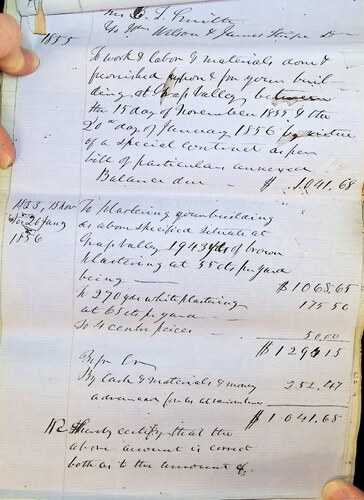 Mr C. S. Smith
To Wm Wilson & James Sharpe Dr
1855
To work & labor & materials done &
furnished upon & for your buil
ding at Grass Valley between
the 15 day of November 1855 & the
20th day of January 1856 by virtue
of a special contract as per
bill of particulars annexed
Balance due - $ 1041.68
1855, 15 Nov To plastering your building
to 20 Jany as above specified situate at
1856 Grass Valley 1943 yds of brown
plastering at 55 cts per yard
being $1068.65
To 270 yds white plastering
at 65 cts per yard 175 50
To 4 centre pieces 50 00
$129415
By Cash & materials & money 252.47
$1041.68
We hereby certify that the
above amount is correct
both as to the amount &